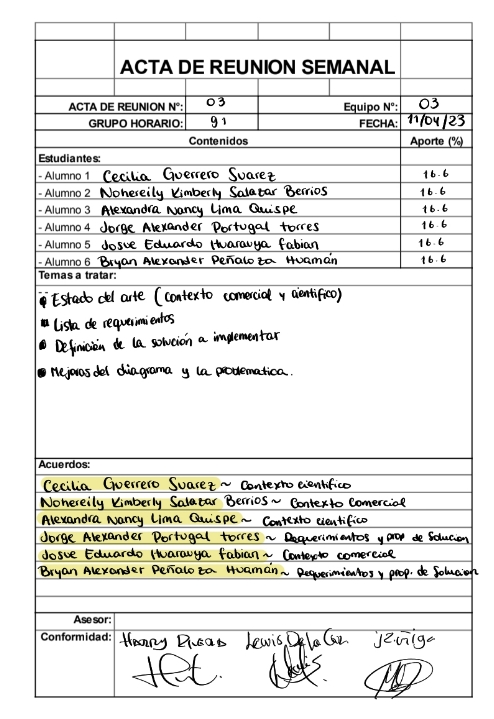 ACTA DE REUNION SEMANAL
ACTA DE REUNION Nº: 03 Equipo Nº: 03
GRUPO HORARIO: 91 FECHA: 11/04/23
Contenidos Aporte (%)
Estudiantes:
- Alumno 1 Cecilia Guerrero Suarez 16.6
- Alumno 2 Nohereily Kimberly Salazar Berrios 16.6
- Alumno 3 Alexandra Nancy Lima Quispe 16.6
- Alumno 4 Jorge Alexander Portugal torres 16.6
- Alumno 5 Josue Eduardo Huaraya fabian 16.6
- Alumno 6 Bryan Alexander Peñaloza Huamán 16.6
Temas a tratar:
• Estado del arte (contexto comercial y cientifico)
• Lista de requerimientos
• Definición de la solución a implementar
• Mejoras del diagrama y la problematica.
Acuerdos:
Cecilia Guerrero Suarez ~ Contexto cientifico
Nohereily Kimberly Salazar Berrios ~ Contexto Comercial
Alexandra Nancy Lima Quispe ~ Contexto cientifico
Jorge Alexander Portugal torres ~ Requerimientos y prop de Solucion
Josue Eduardo Huaraya fabian ~ Contexto comercial
Bryan Alexander Peñaloza Huamán ~ Requerimientos y prop. de Solucion
Asesor:
Conformidad: Harry Lewis De la Cruz